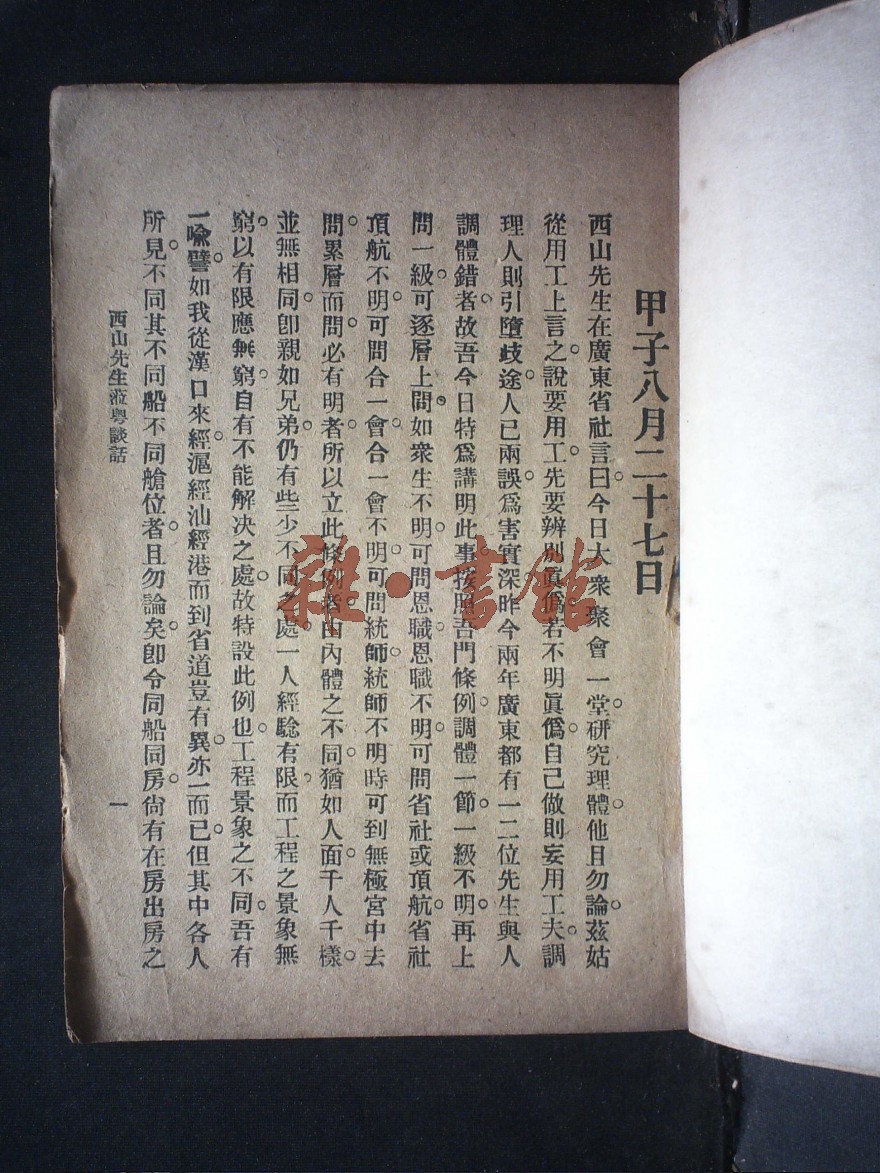 甲子八月二十七日
西山先生在廣東省社言曰。今日大衆聚會一堂。研究理體。他且勿論。茲姑
從用工上言之。說要用工。先要辨別眞僞。若不明眞僞。自己做則妄用工夫。調
理人則引墮歧途。人已兩誤。爲害實深。昨今兩年廣東都有一二位先生與人
調體錯者。故吾今日特爲講明此事。按照吾門條例。調體一節。一級不明。再上
問一級。可逐層上問。如衆生不明。可問恩職。恩職不明。可問省社或頂航。省社
頂航不明。可問合一會。合一會不明。可問統師。統師不明時。可到無極宮中去
問。累層而問。必有明者。所以立此條例者。因內體之不同。猶如人面。千人千樣。
並無相同。卽親如兄弟。仍有些少不同之處。一人經驗有限。而工程之景象無
窮。以有限應無窮。自有不能解決之處。故特設此例也。工程景象之不同。吾有
一喩。譬如我從漢口來。經滬經汕經港而到省。道豈有異。亦一而已。但其中各人
所見不同。其不同船不同艙位者。且勿論矣。卽令同船同房。尙有在房出房之
西山先生蒞粤談話
一
雜·書館